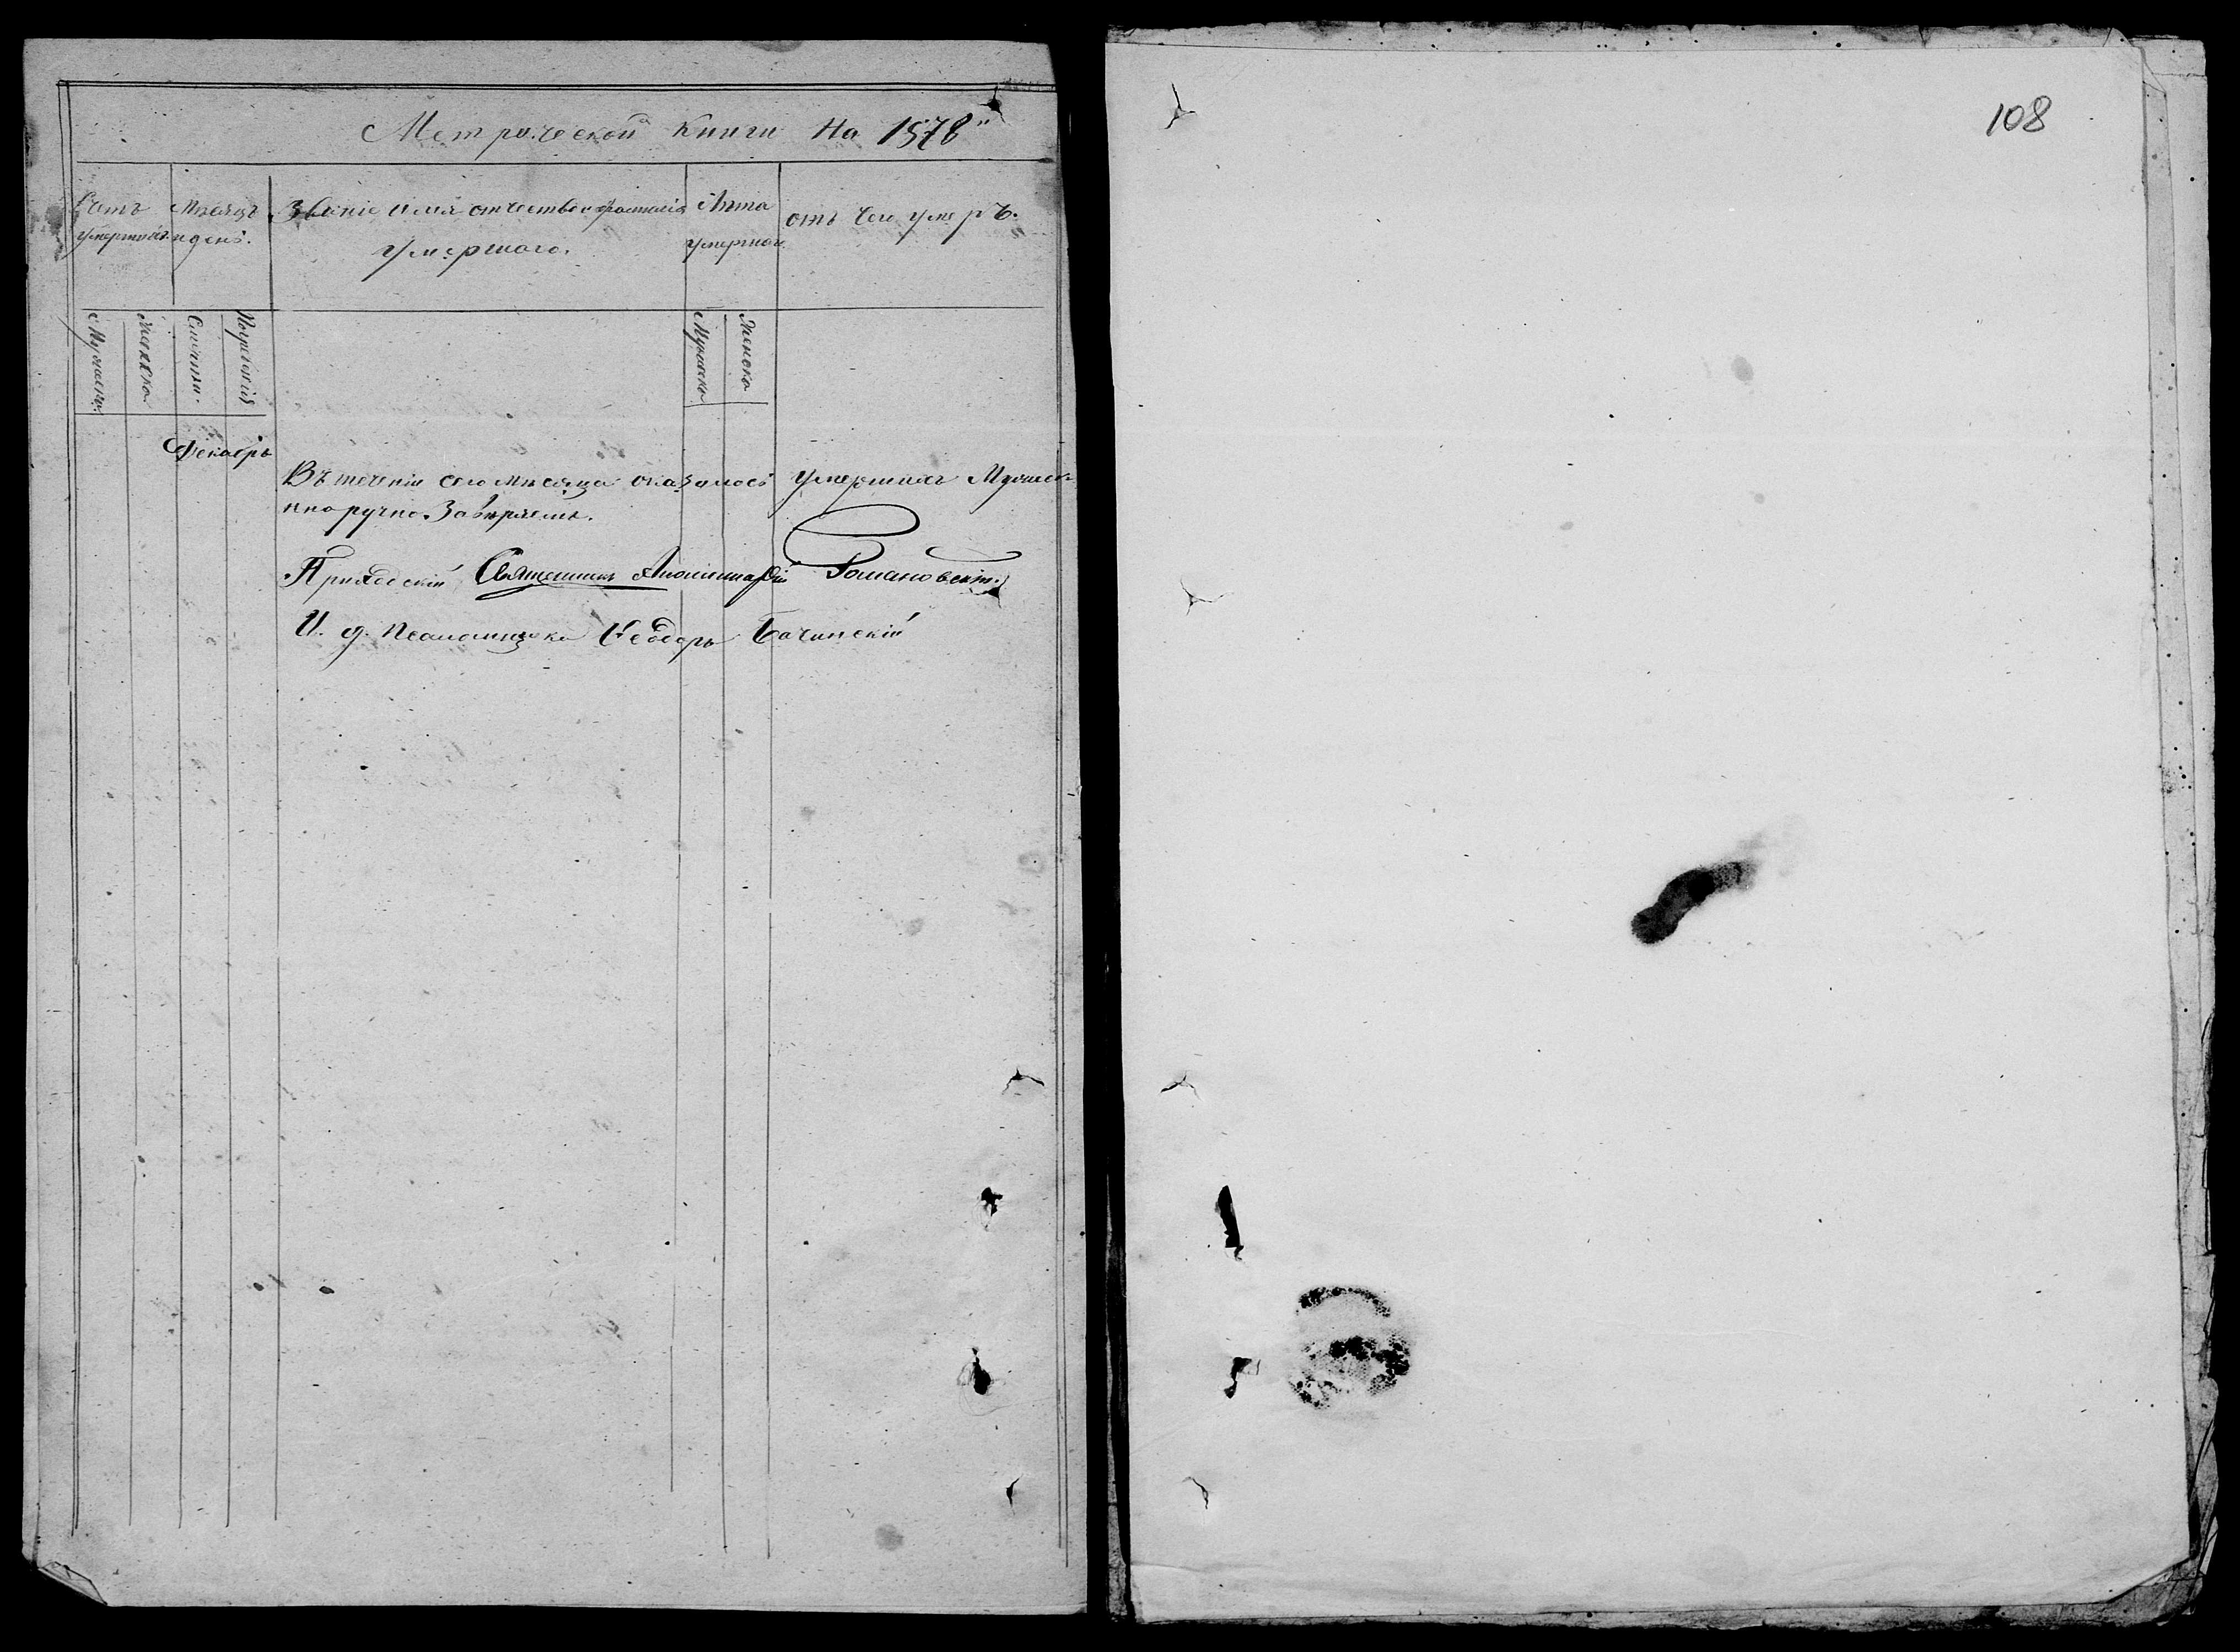 Метрической Книги На 1878
Счетъ умершихъ
Мѣсяцъ и день.
Званіе имя отчество и фамилія
умершаго.
Лѣта умершаго
отъ чего умеръ.
Мужеска.
Женска.
Смерти.
Погребенія
Мужеска
Женска
Декабрь
Въ теченіи сего мѣсяца оказалось умершихъ Мужеск
норучно Завѣряемъ.
Приходскій Священникъ Романовскій
И. д. Псаломщика Ѳеодоръ Бачинскій
108